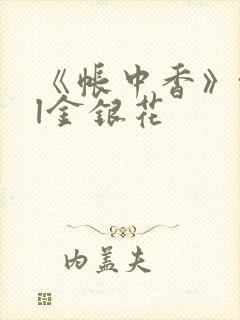 《帐中香》
|金银花
内盖夫